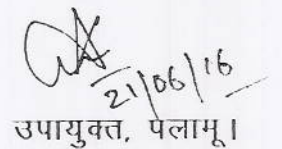 21/06/16
उपायुक्त, पलामू।